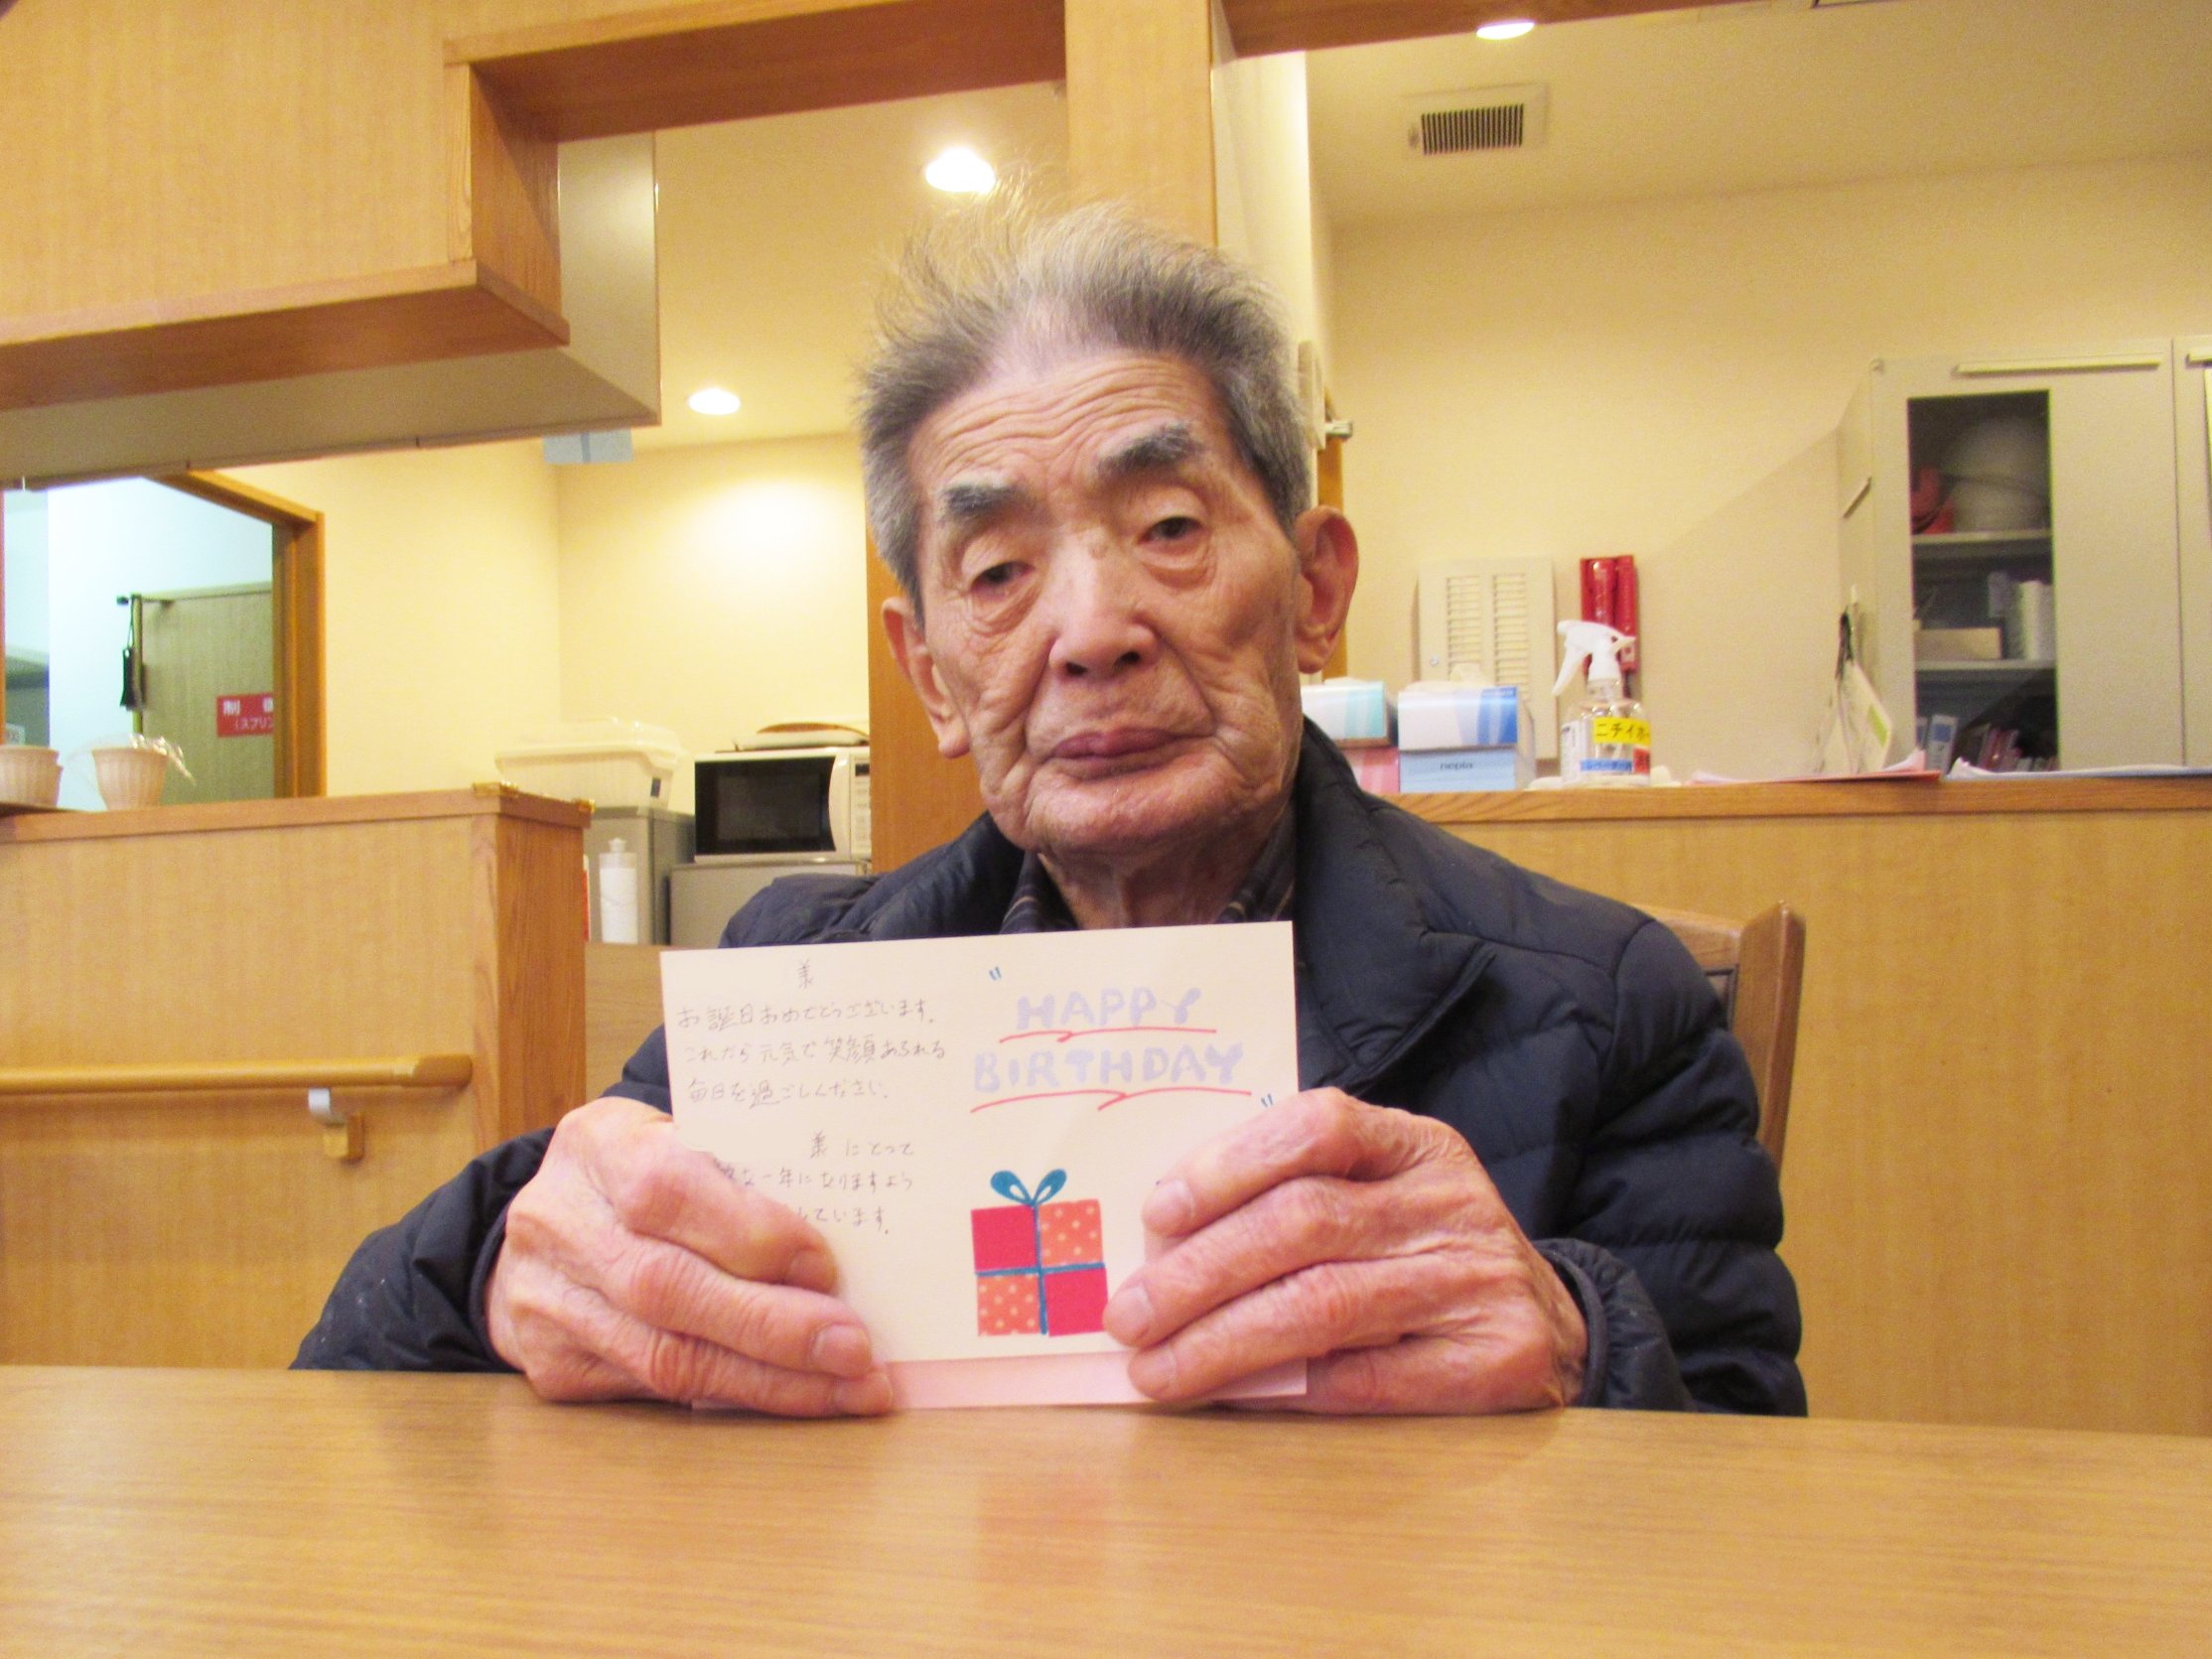 様
お誕生日おめでとうございます。
これから元気で笑顔あふれる
毎日を過ごしんなさい。
様 にとって
な一年になりますよう
しています。
"HAPPY
BIRTHDAY"
制
(スプリン
nepia
ニチイ